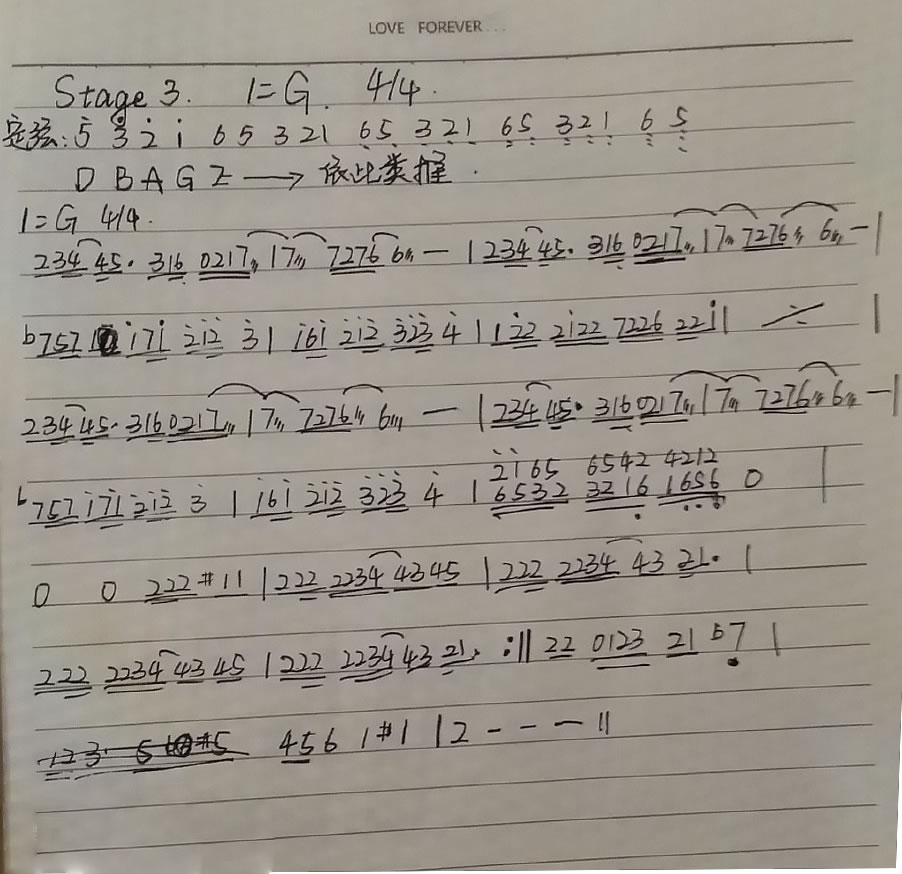 LOVE FOREVER...
Stage 3. 1=G. 4/4.
定弦: 5 3 2 1 6 5 3 2 1 6 5 3 2 1 6 5 3 2 1 6 5
D B A G E → 依此类推.
1=G 4/4.
234 45. 316 0217 | 17 7276 6 — | 234 45. 316 0217 | 17 7276 6 — |
b757 171 212 3 | 161 212 323 4 | 122 2122 7226 221 |  |
234 45. 316 0217 | 17 7276 6 — | 234 45. 316 0217 | 17 7276 6 — |
2165 6542 4212
b757 171 212 3 | 161 212 323 4 | 6532 3216 1656 0 |
0 0 222 #11 | 222 2234 4345 | 222 2234 43 21. |
222 2234 43 45 | 222 2234 43 21. :|| 22 0123 21 b7 |
456 1#1 | 2 - - - ||